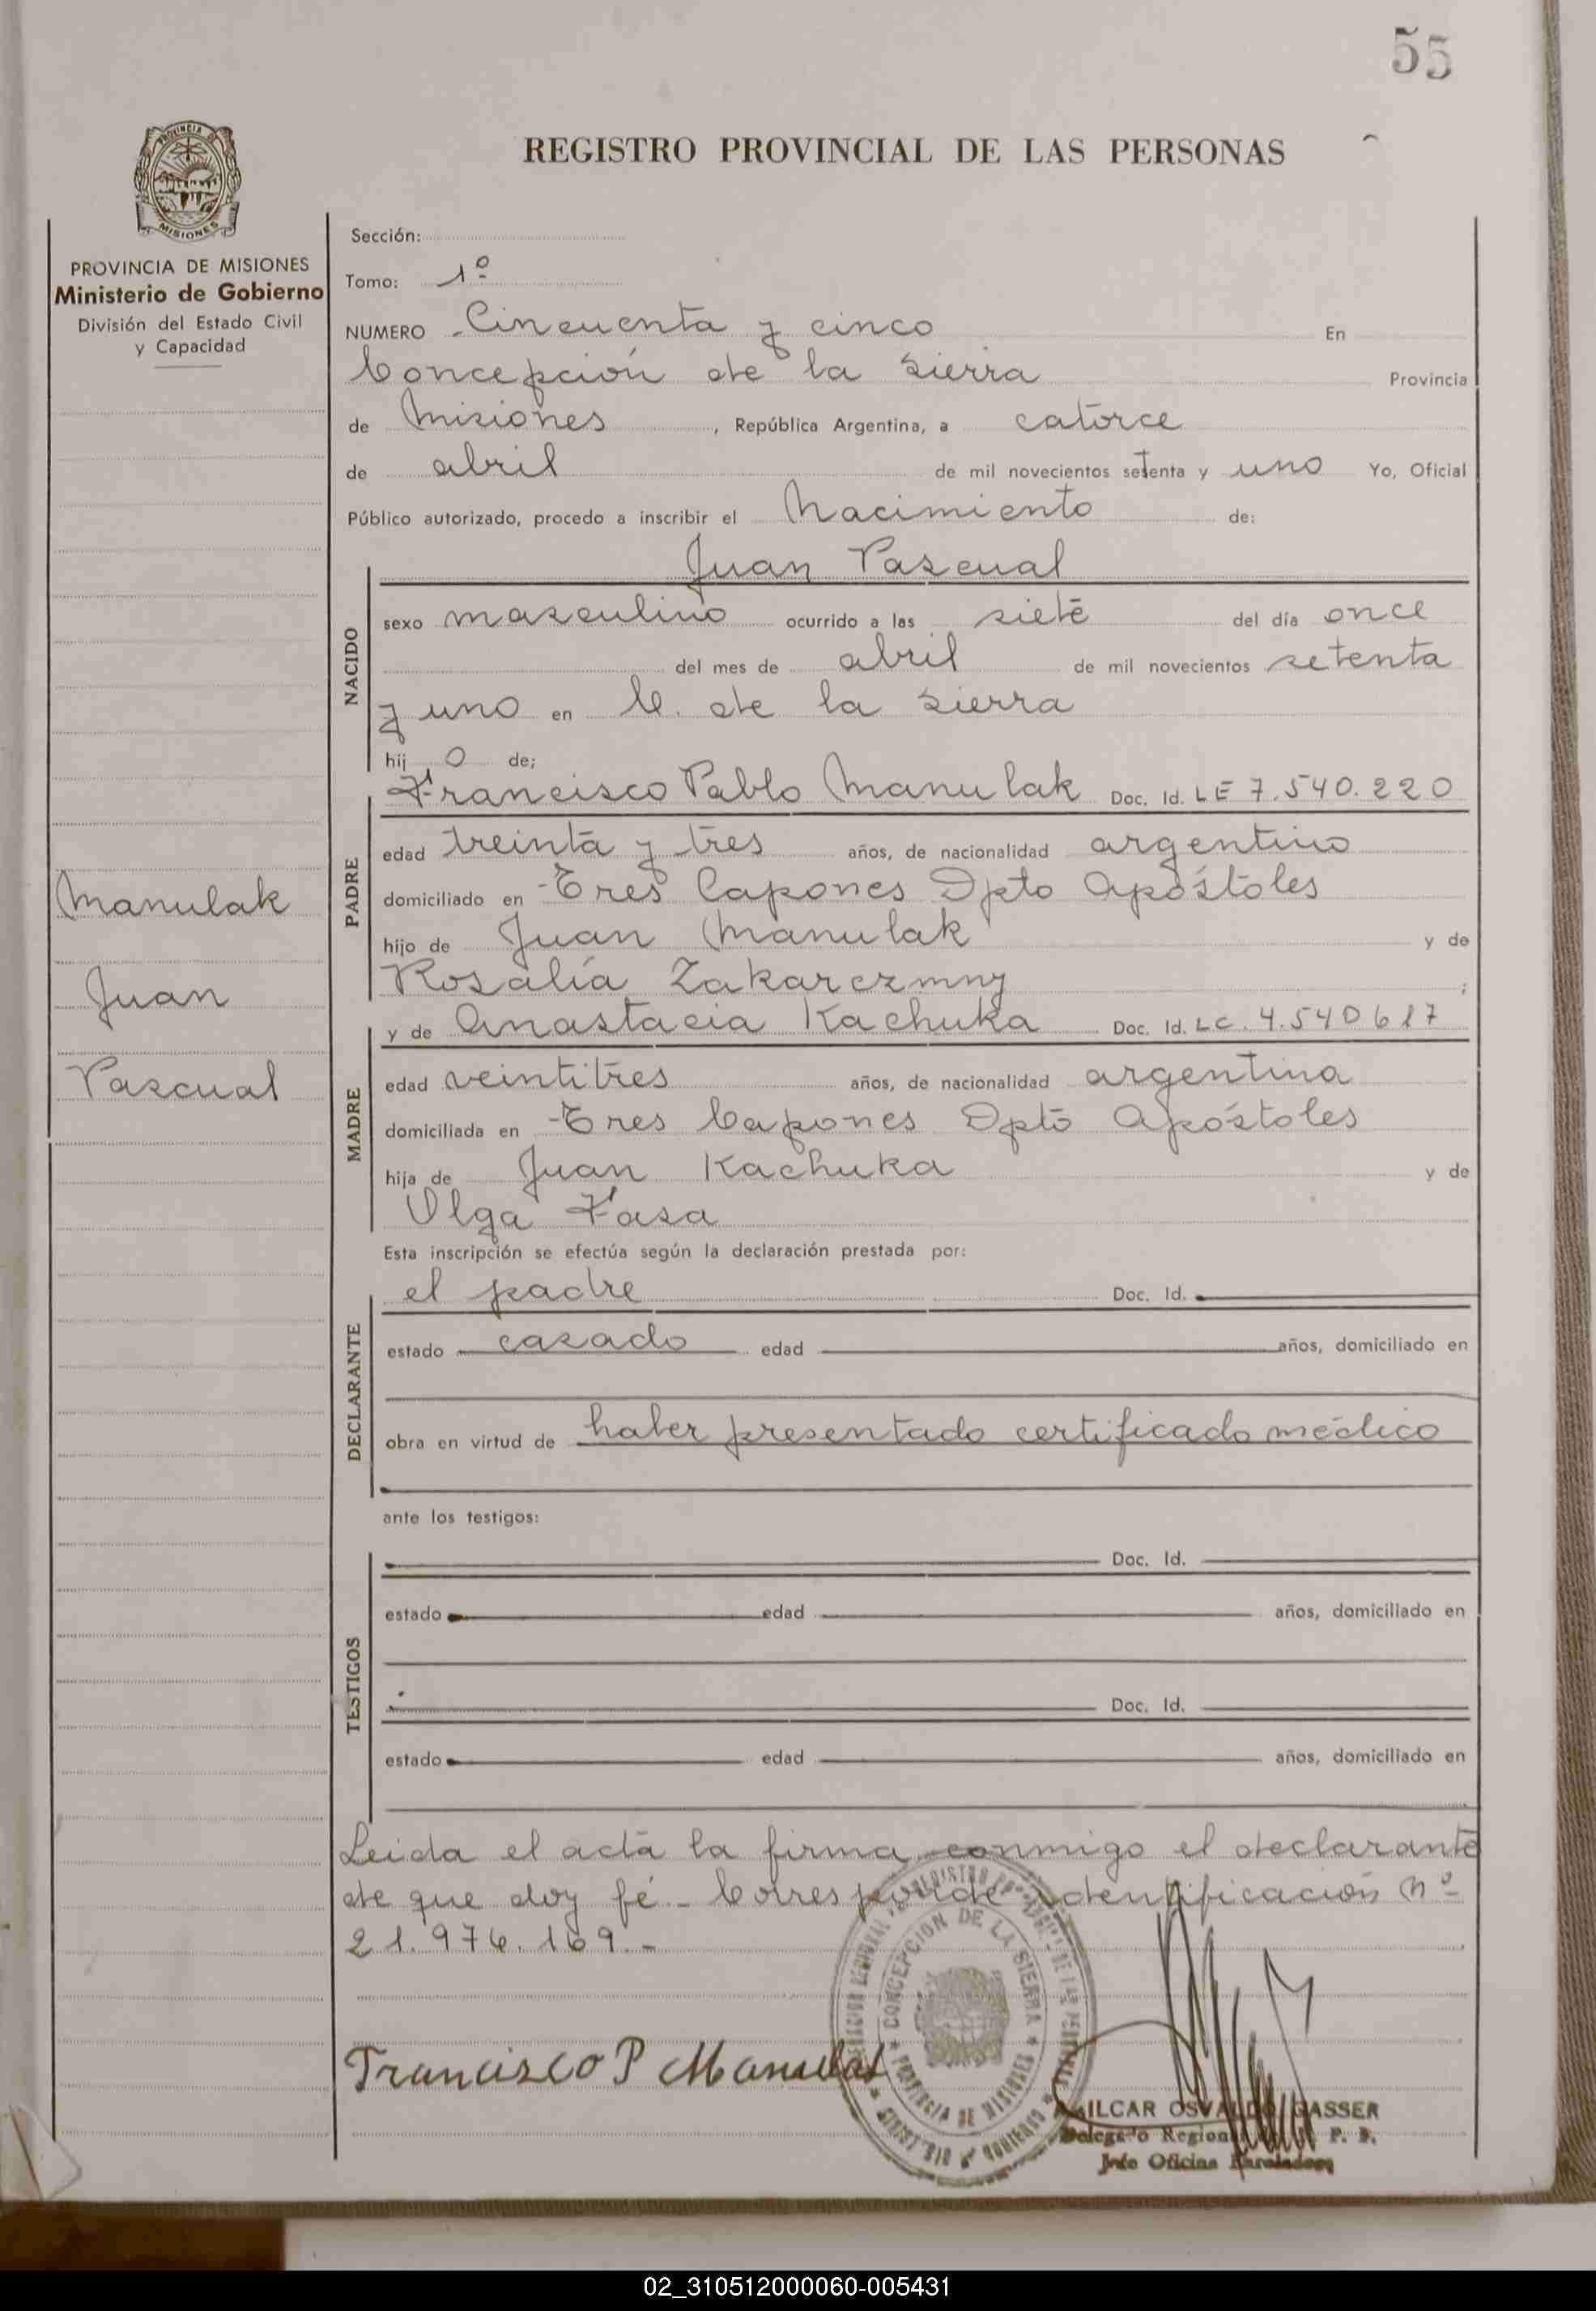 55
REGISTRO PROVINCIAL DE LAS PERSONAS
PROVINCIA DE MISIONES
Ministerio de Gobierno
División del Estado Civil
y Capacidad
Manulak
Juan
Pascual
Sección:
Tomo: 1º
NUMERO Cincuenta y cinco En
Concepción de la Sierra Provincia
de Misiones, República Argentina, a catorce
de abril de mil novecientos setenta y uno Yo, Oficial
Público autorizado, procedo a inscribir el Nacimiento de:
Juan Pascual
NACIDO
sexo masculino ocurrido a las siete del día once
del mes de abril de mil novecientos setenta
y uno en C. de la Sierra
hij o de;
Francisco Pablo Manulak Doc. Id. LE 7.540.220
PADRE
edad treinta y tres años, de nacionalidad argentino
domiciliado en Tres Capones Dpto Apóstoles
hijo de Juan Manulak y de
Rosalía Zakarczmny ;
y de Anastacia Kachuka Doc. Id. LC. 4.540617
MADRE
edad veintitres años, de nacionalidad argentina
domiciliada en Tres Capones Dpto Apóstoles
hija de Juan Kachuka y de
Olga Fasa
Esta inscripción se efectúa según la declaración prestada por:
el padre Doc. Id.
DECLARANTE
estado casado edad años, domiciliado en
obra en virtud de haber presentado certificado médico
ante los testigos:
TESTIGOS
Doc. Id.
estado edad años, domiciliado en
Doc. Id.
estado edad años, domiciliado en
Leida el acta la firma conmigo el declarante
de que doy fé - Corresponde identificación Nº
21.976.169.-
CONCEPCION DE LA SIERRA
PROVINCIA DE MISIONES
Francisco P Manulak
AMILCAR OSVALDO GASSER
Delegado Regional P.
Jefe Oficina
02_310512000060-005431